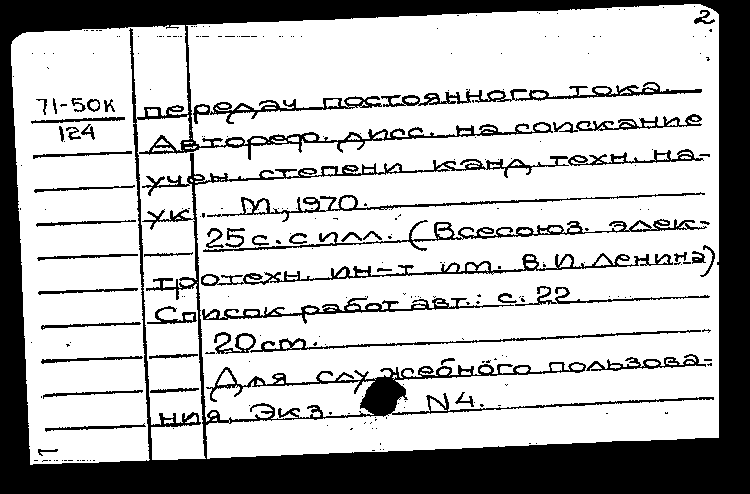 2
71-50к
124
передач постоянного тока.
Автореф. дисс. на соискание
учен. степени канд. техн. на-
ук. М., 1970.
25 с. с илл. (Всесоюз. элек-
тротехн. ин-т им. В.И. Ленина).
Список работ авт.: с. 22.
20 см.
Для служебного пользова-
ния. Экз. N 4.